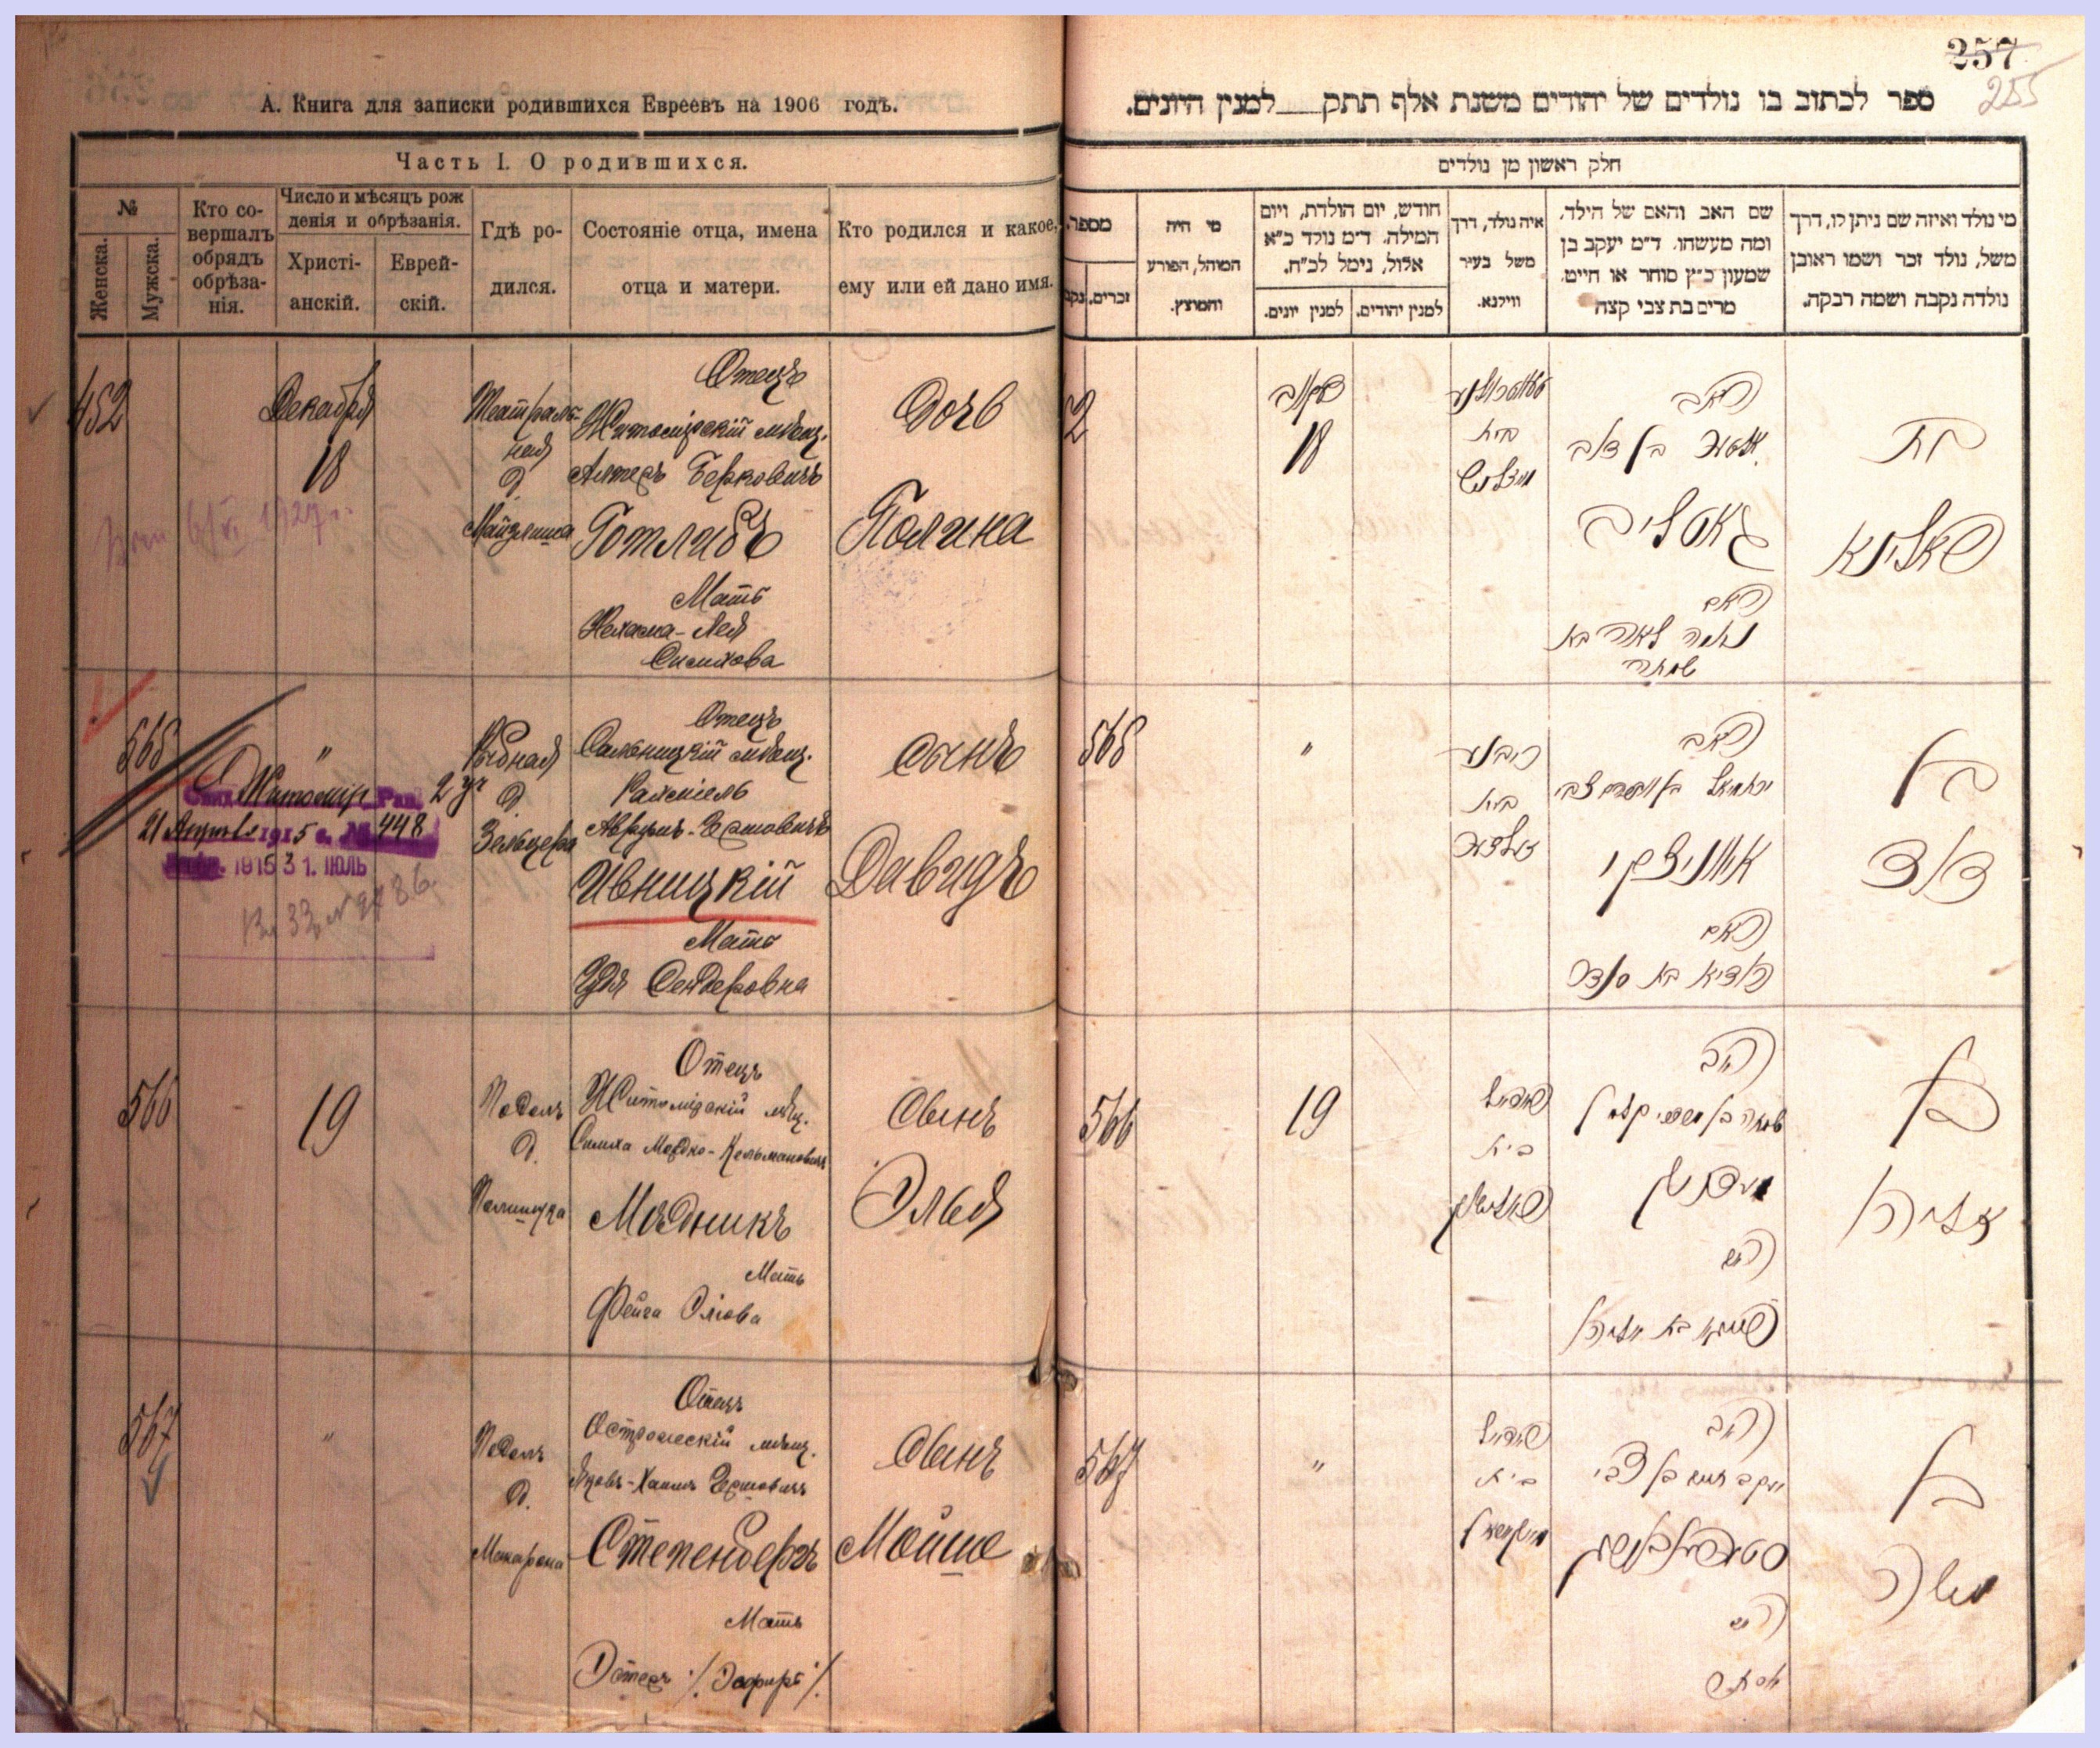 А. Книга для записки родившихся Евреевъ на 1906 годъ.
Часть I. О родившихся.
№
Женска.
Мужска.
Кто со-
вершалъ
обрядъ
обрѣза-
нія.
Число и мѣсяцъ рож
денія и обрѣзанія.
Христі-
анскій.
Еврей-
скій.
Гдѣ ро-
дился.
Состояніе отца, имена
отца и матери.
Кто родился и какое,
ему или ей дано имя.
452
Декабря
18
Театраль-
ная
д.
Майзлиша
Отецъ
Житомірскій мѣщ.
Алтеръ Берковичъ
Готлибъ
Мать
Нехама-Лея
Симхова
Дочь
Полина
565
"
Житомір
2 уч
21 Августа 1915 г. № 448
1915 31. ІЮЛЬ
Рыбная
д.
Зельцера
Отецъ
Сальницкій мѣщ.
Рахміель
Аврумъ-Гершовичъ
Ивницкій
Мать
Удя Сендеровна
Сынъ
Давидъ
566
19
Подолъ
д.
Отецъ
Житомірскій мѣщ.
Симха Мордко-Кельмановичъ
Мѣдникъ
Мать
Фейга Эліова
Сынъ
Элья
567
"
Подолъ
д.
Макарона
Отецъ
Острожескій мѣщ.
Яковъ-Хаимъ Гершовичъ
Степенберъ
Мать
Эстеръ ./. Эсфирь ./.
Сынъ
Мойше
257
255
ספר לכתוב בו נולדים של יהודים משנת אלף תתק___למנין היונים.
חלק ראשון מן נולדים
מספר.
זכרים.
נקב
מי היה
המוהל, הפורע
והמוצץ.
חודש, יום הולדת, ויום
המילה. ד״מ נולד כ״א
אלול, נימל לכ״ח.
למנין יונים.
למנין יהודים.
איה נולד, דרך
משל בעיר
ווילנא.
שם האב והאם של הילד,
ומה מעשהו. ד״מ יעקב בן
שמעון כ״ץ סוחר או חייט.
מרים בת צבי קצה
מי נולד ואיזה שם ניתן לו, דרך
משל, נולד זכר ושמו ראובן
נולדה נקבה ושמה רבקה.
2
18
בית
האב
גאטליב
האם
בת
פאלינא
565
"
בית
האב
האם
בן
דוד
566
19
בית
האב
האם
בן
אליהו
567
"
בית
האב
יעקב חיים בן צבי
האם
אסתר
בן
משה